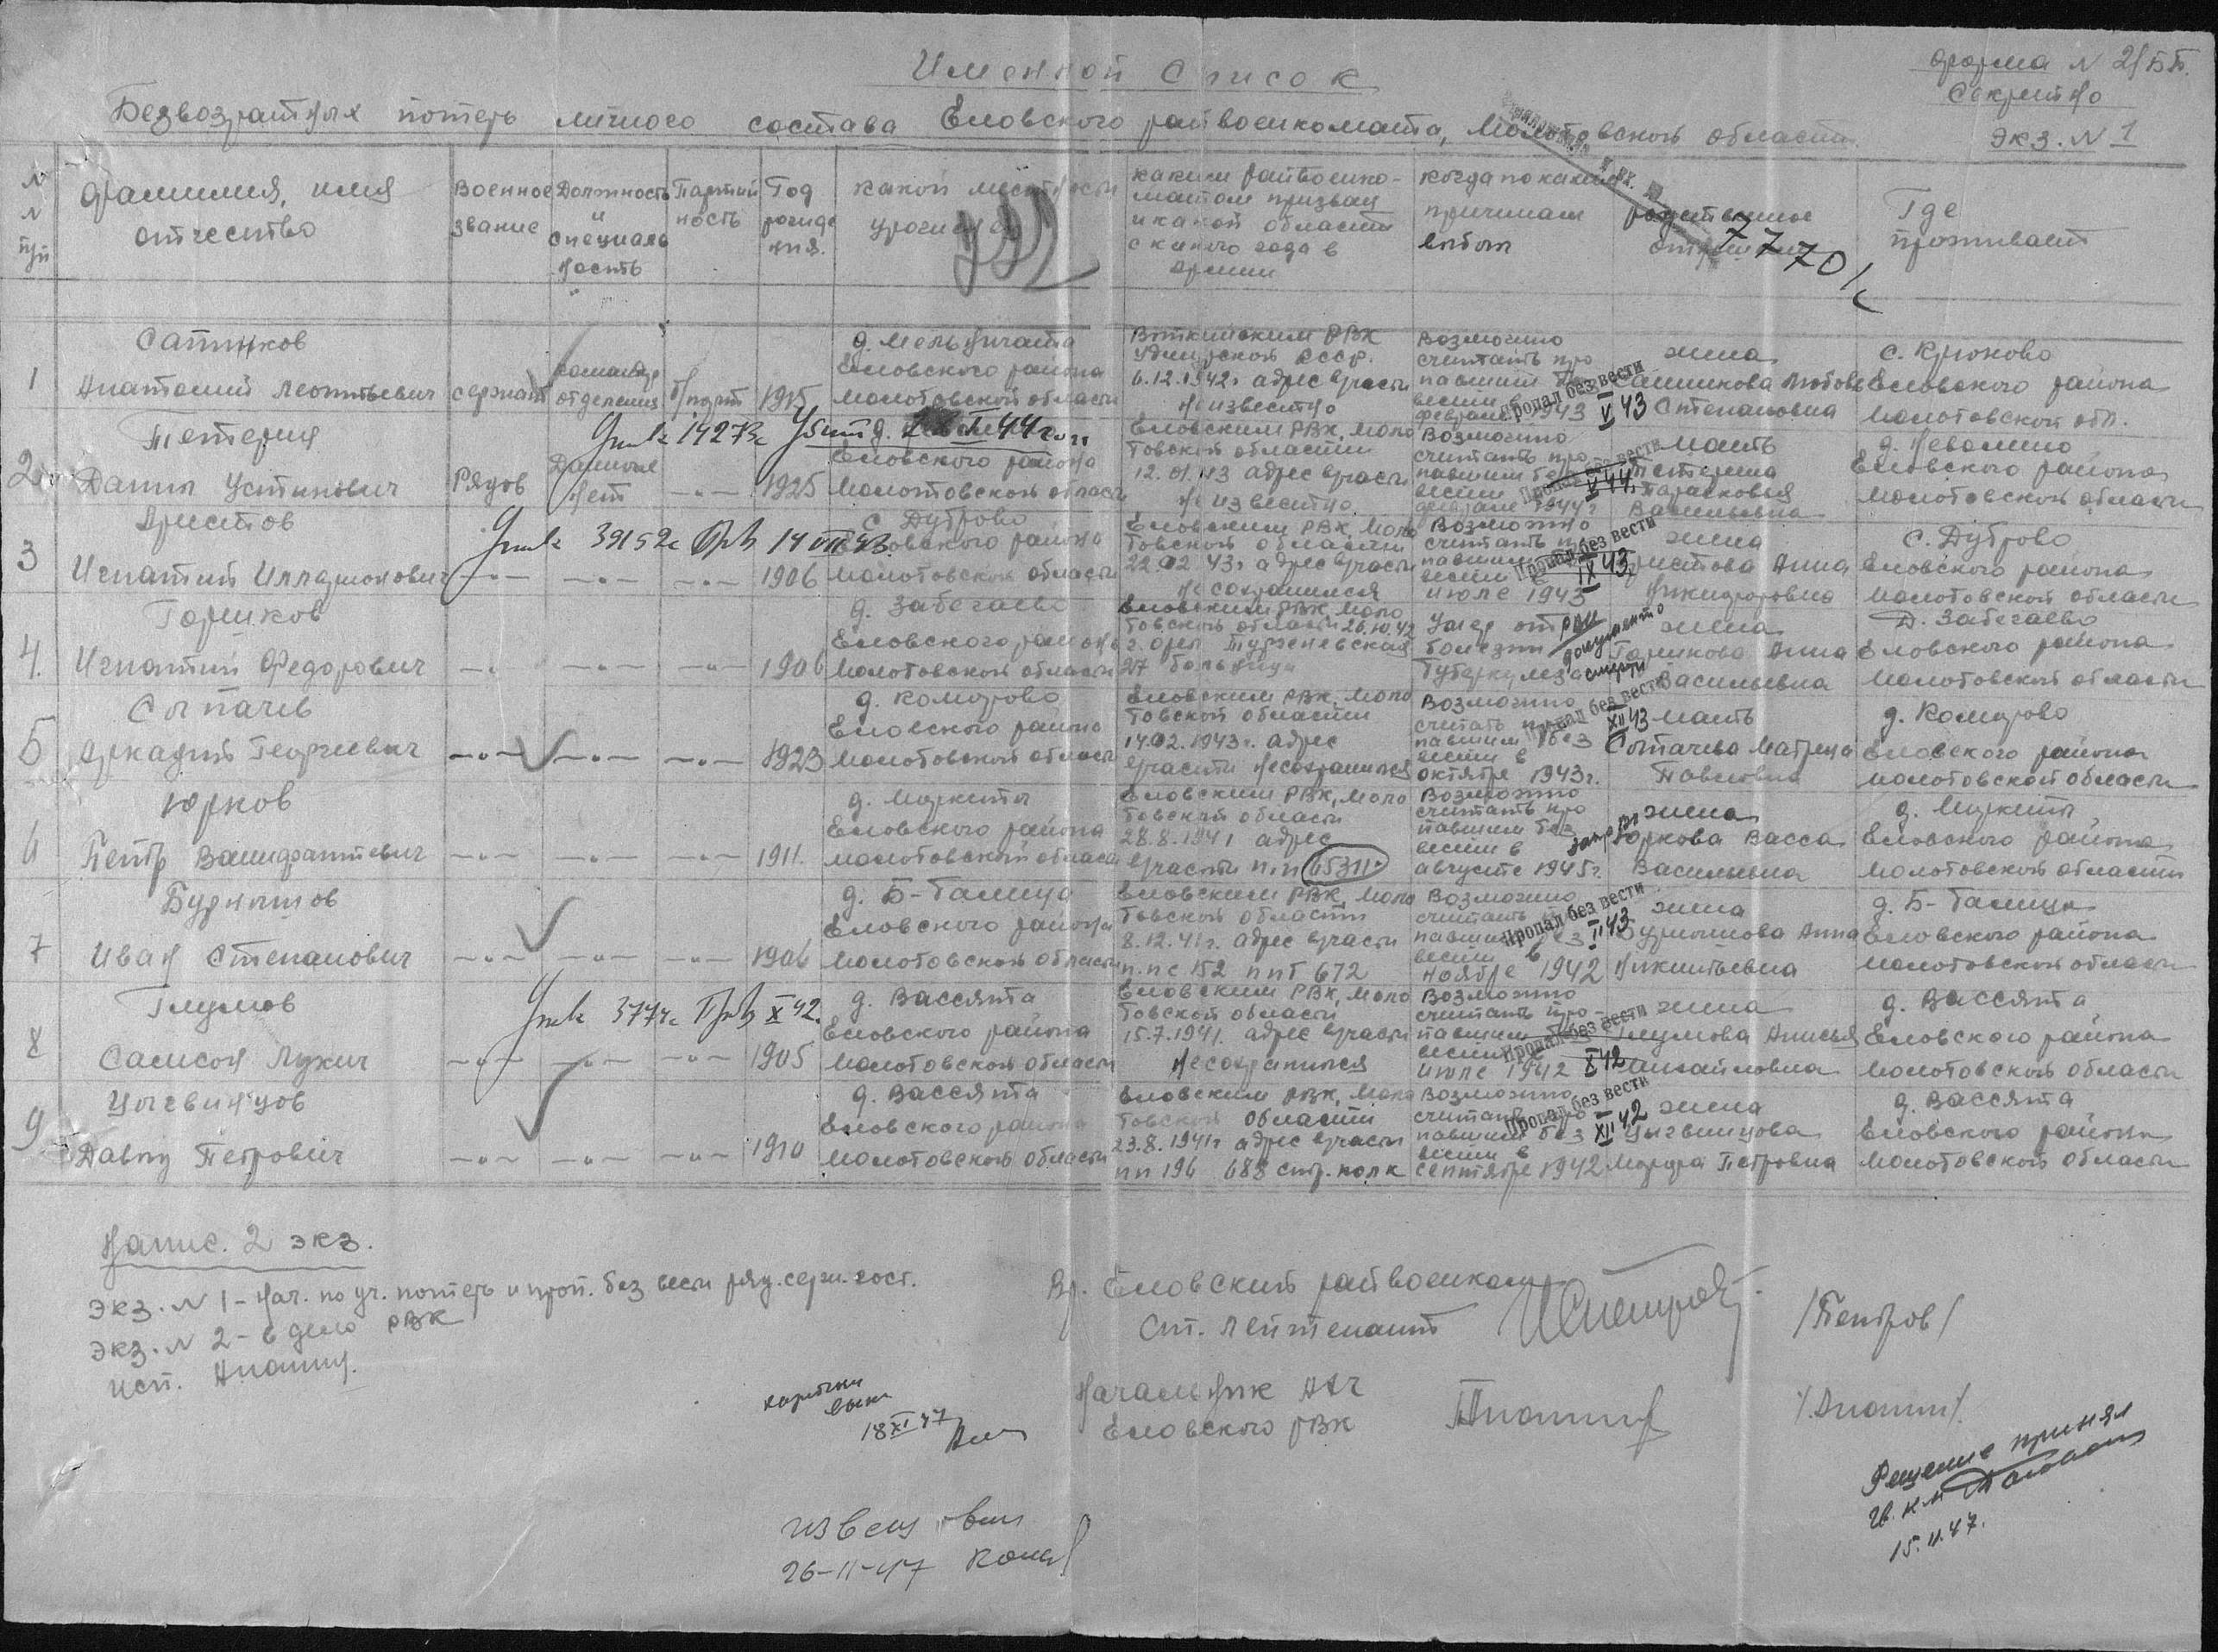 Именной список
форма N 2/БП.
Секретно
экз. N 1
Безвозратных потерь личного состава Еловского райвоенкомата, Молотовской области.
N N п/п
фамилия, имя отчество
Военное звание
Должность и специальность
Партийность
Год рождения.
какой местности уроженец
каким райвоенкоматом призван и какой области с какого года в армии
когда по каким причинам выбыл
родственное отношение
Где проживает
7770/с
1
Сапинков
Анатолий Леонтьевич
сержант
командир отделения
б/парт
1915
д. Мельничата
Еловского района
Молотовской области
Воткинским РВК
Удмурской АССР.
6.12.1942г адрес в/части
не известно
Возможно
считать про
павшим без
вести в
феврале 1943
Пропал без вести
V 43
жена
Сапинкова Любовь
Степановна
с. Крюково
Еловского района
Молотовской обл.
2
Тетерин
Данил Устинович
Рядов
Данных нет
-"-
1925
Еловского района
Молотовской области
Еловским РВК, Моло
товской области
12.01.43 адрес в/части
не известно.
Возможно
считать про
павшим без
вести в
феврале 1944г
Пропал без вести
V 44.
мать
Тетерина
Парасковья
Васильевна
д. Неволино
Еловского района
Молотовской области
3
Аристов
Игнатий Илларионович
-"-
-"-
-"-
1906
с. Дуброво
Еловского района
Молотовской области
Еловским РВК, Моло
товской области
22.02.43г. адрес в/части
не сохранился
Возможно
считать про
павшим
вести в
июле 1943
Пропал без вести
IX 43
жена
Аристова Анна
Никифоровна
с. Дуброво
Еловского района
Молотовской области
4.
Горшков
Игнатий Федорович
-"-
-"-
-"-
1906
д. Забегаево
Еловского района
Молотовской области
Еловским РВК, Моло
товской области 26.10.42
г. Орел Тургеневская
больница
Умер от
болезни
туберкулеза
документ о смерти
жена
Горшкова Анна
Васильевна
д. Забегаево
Еловского района
Молотовской области
5
Сыпачев
Аркадий Георгиевич
-"-
-"-
-"-
1923
д. Комарово
Еловского района
Молотовской области
Еловским РВК, Моло
товской области
14.02.1943г. адрес
в/части не сохранился
Возможно
считать про
павшим без
вести в
октябре 1943г.
Пропал без вести
XII 43
мать
Сыпачева Матрена
Павловна
д. Комарово
Еловского района
Молотовской области
6
Юрков
Петр
-"-
-"-
-"-
1911.
Еловского района
Молотовской области
Еловским РВК, Моло
товской области
28.8.1941 адрес
в/части п.п 65311
Возможно
считать про
павшим без
вести в
августе 1945г.
жена
Юркова Васса
Васильевна
Еловского района
Молотовской области
7
Бурнышов
Иван Степанович
-"-
-"-
-"-
1906
д. Б-Галица
Еловского района
Молотовской области
Еловским РВК, Моло
товской области
8.12.41г. адрес в/части
п.пс 152 ппт 672
Возможно
считать про
павшим без
вести в
ноябре 1942
Пропал без вести
II 43
жена
Бурнышова Анна
Никитьевна
д. Б-Галица
Еловского района
Молотовской области
8
Глумов
Самсон Лукич
-"-
-"-
-"-
1905
д. Вассята
Еловского района
Молотовской области
Еловским РВК, Моло
товской области
15.7.1941. адрес в/части
не сохранился
Возможно
считать про-
павшим без
вести в
июле 1942
Пропал без вести
X 42
жена
Глумова Анисья
Михайловна
д. Вассята
Еловского района
Молотовской области
9
Цыгвинцов
Давыд Петрович
-"-
-"-
-"-
1910
д. Вассята
Еловского района
Молотовской области
Еловским РВК, Моло
товской области
23.8.1941г адрес в/части
пп 196 683 стр. полк
Возможно
считать про
павшим без
вести в
сентябре 1942
Пропал без вести
XII 42
жена
Цыгвинцова
Марфа Петровна
д. Вассята
Еловского района
Молотовской области
Напис. 2 экз.
Экз. N 1 - нач. по уч. потерь и проп. без вести ряд. серж. сост.
Экз. N 2 - в дело РВК
исп. Аношин.
Вр. Еловский райвоенком
Ст. лейтенант
/Петров/
Начальник
Еловского РВК
/Аношин/.
18 XI 47
извещ
26-11-47
Решение принял
15.11.47.